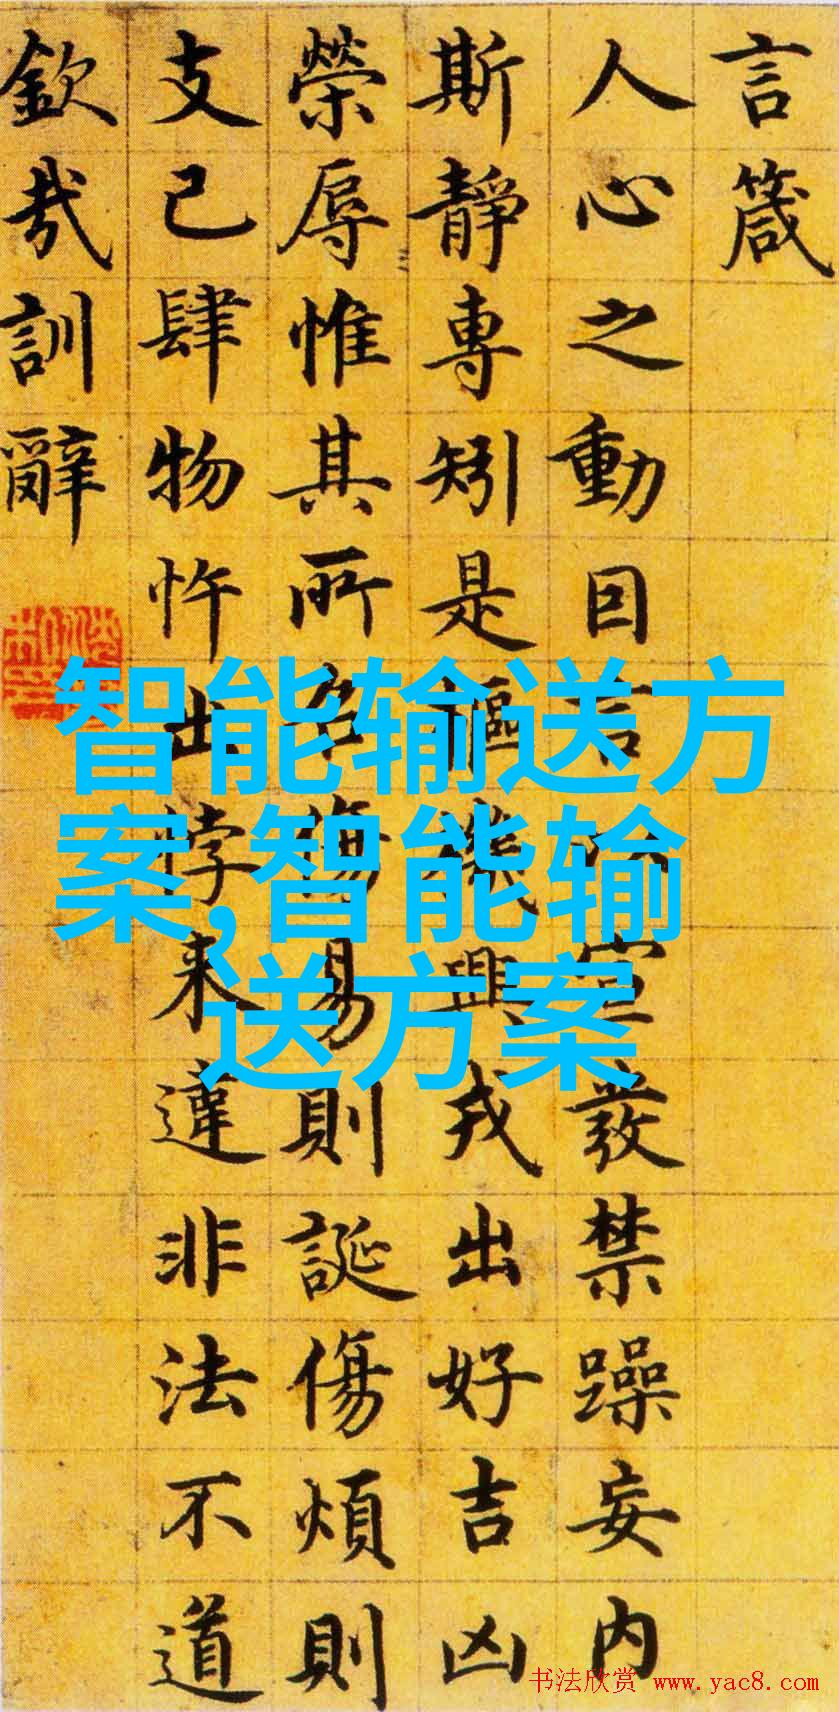 言箴
人心之動因言以宣發禁躁妄内
斯靜專矧是樞機興戎出好吉凶
榮辱惟其所召傷易則誕傷煩則
支己肆物忤出悖来違非法不道
欽哉訓辭
智能输送方
案,智能输
送方案
书法欣赏 www.yac8.com